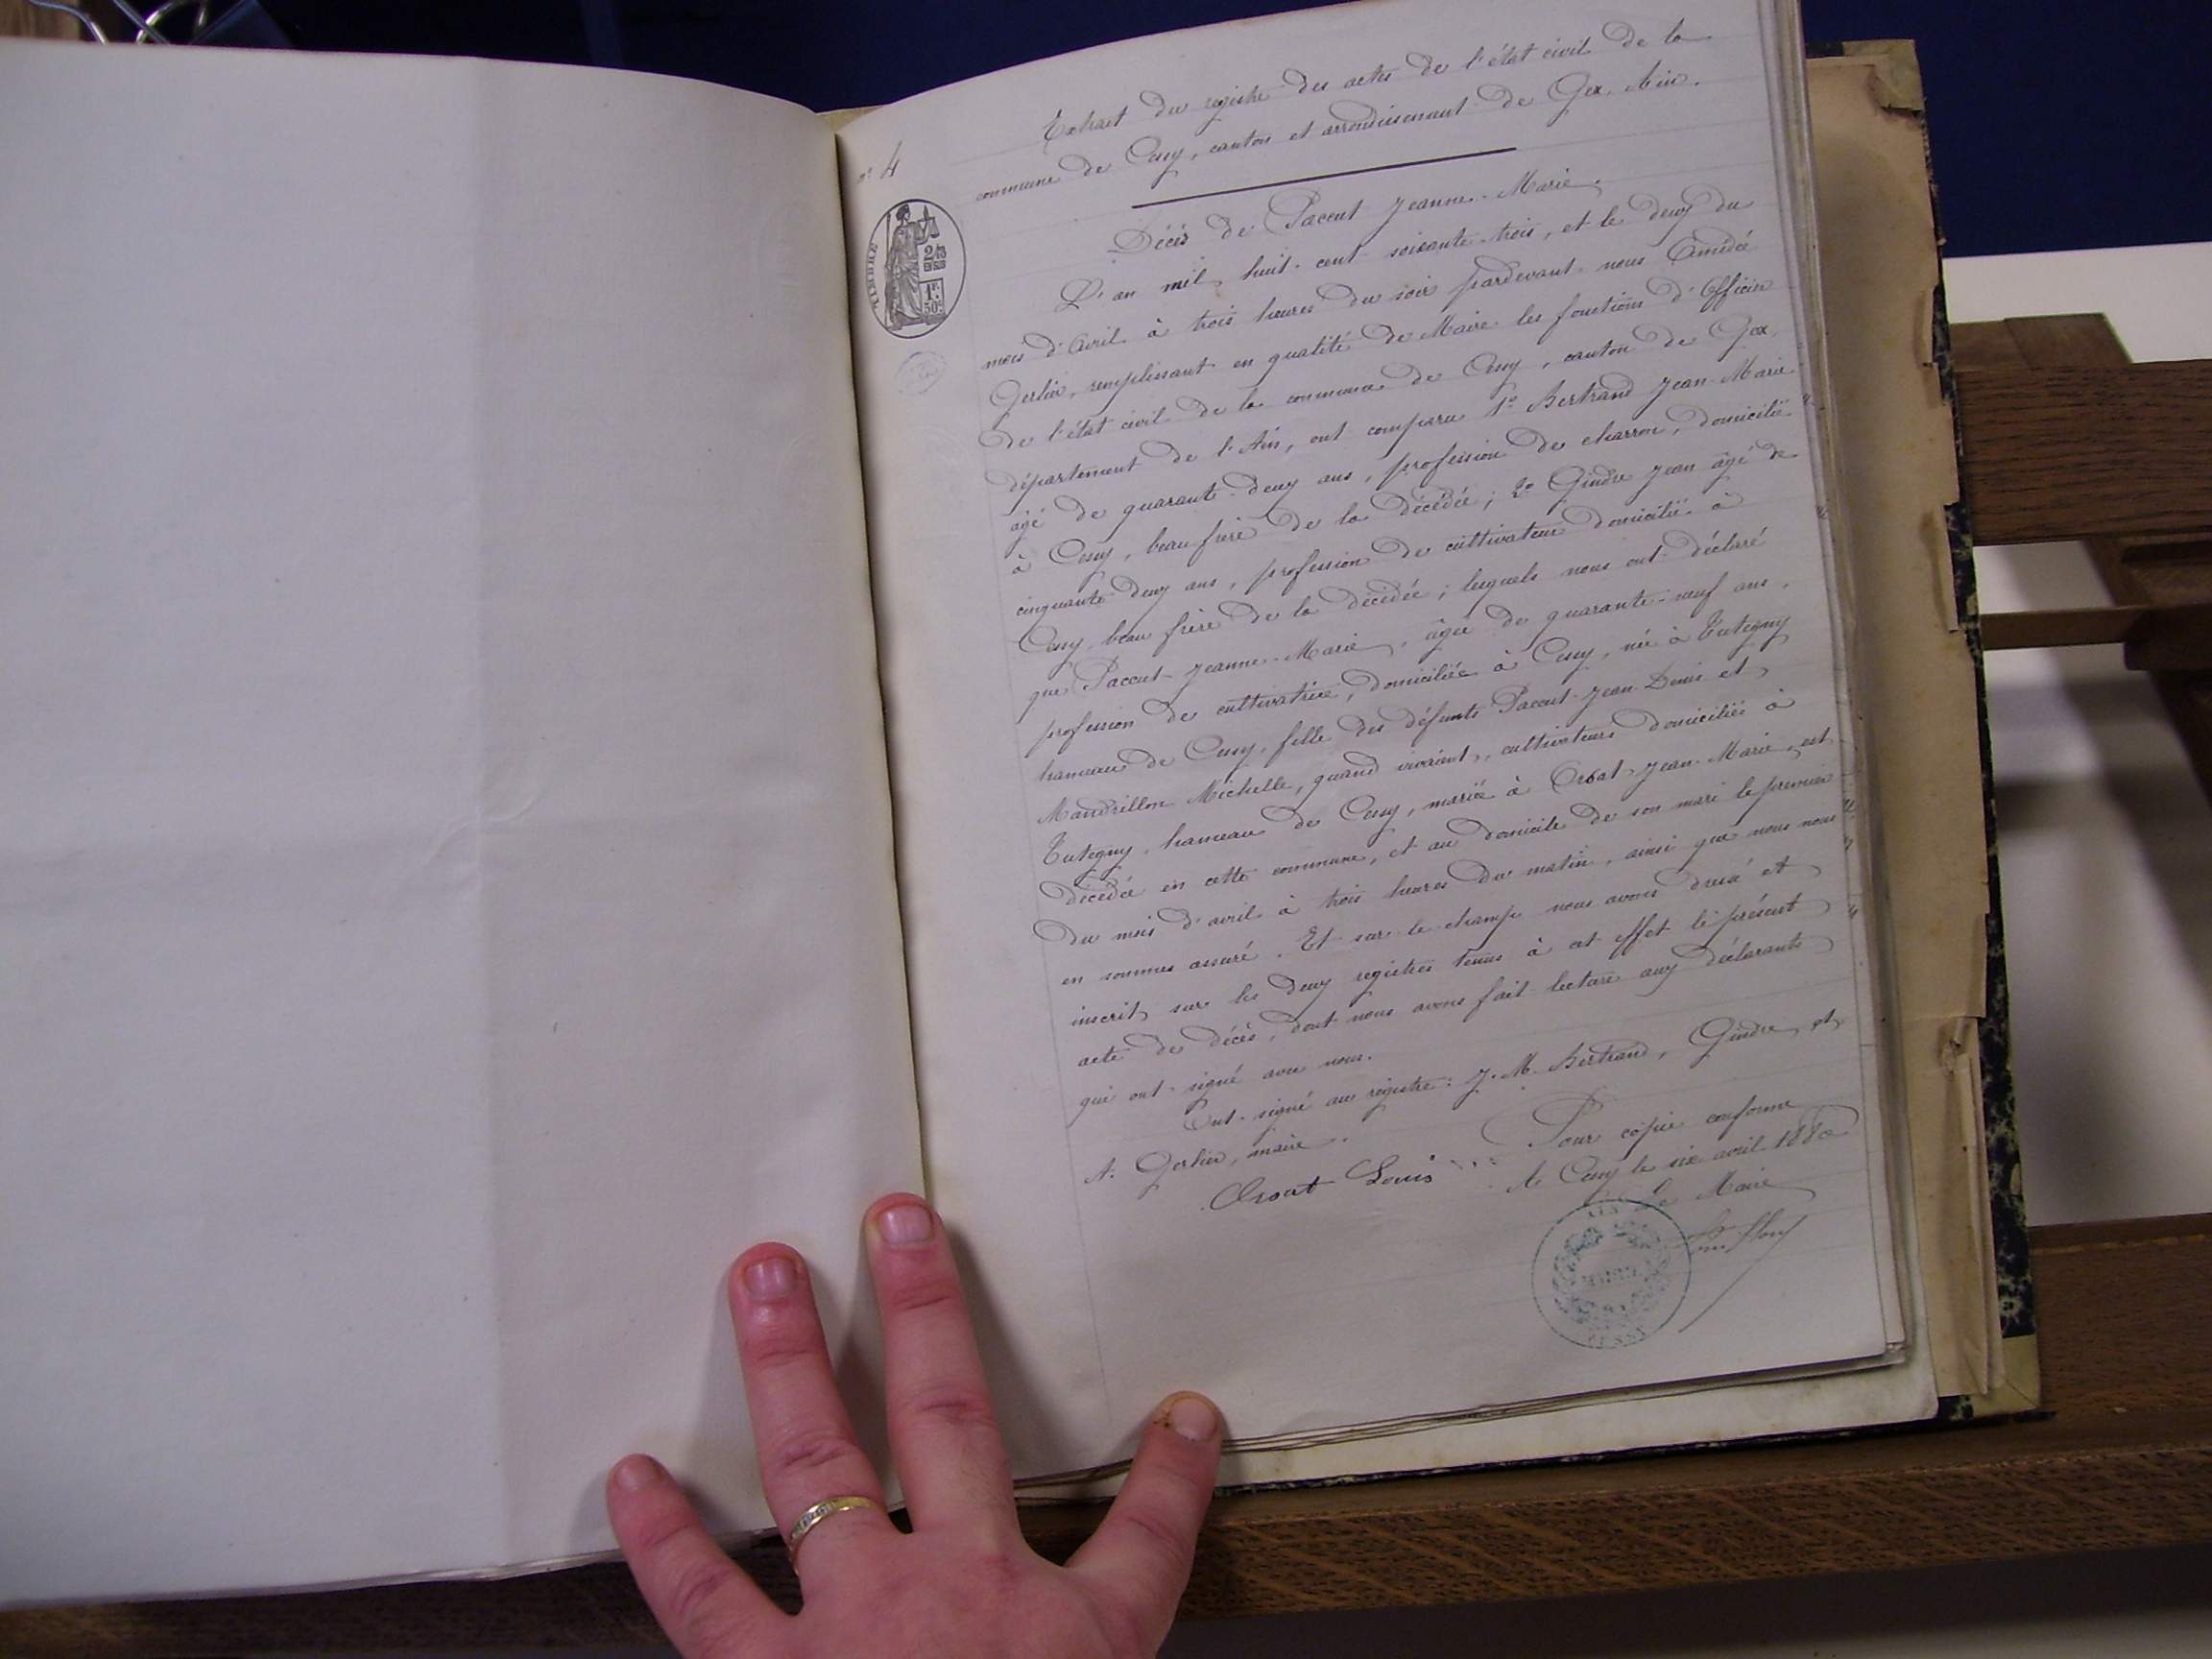 Extrait du registre des actes de l'état civil de la
commune de Cessy, canton et arrondissement de Gex, Ain.
n° 4
TIMBRE
2/10
EN SUS
1F.
50c
Décès de Paccut Jeanne-Marie.
L'an mil huit-cent-soixante-trois, et le deux du
mois d'avril à trois heures du soir pardevant nous Amédée
Gerlier, remplissant en qualité de Maire les fonctions d'Officier
de l'état civil de la commune de Cessy, canton de Gex,
département de l'Ain, ont comparu 1° Bertrand Jean-Marie
âgé de quarante-deux ans, profession de charron, domicilié
à Cessy, beau frère de la décédée; 2° Gindre Jean âgé de
cinquante deux ans, profession de cultivateur domicilié à
Cessy, beau frère de la décédée; lesquels nous ont déclaré
que Paccut Jeanne-Marie, âgée de quarante-neuf ans,
profession de cultivatrice, domiciliée à Cessy, née à Tutegny
hameau de Cessy, fille des défunts Paccut Jean-Denis et
Mandrillon Michelle, quand vivaient, cultivateurs domiciliés à
Tutegny, hameau de Cessy, mariée à Orsat Jean-Marie, est
décédée en cette commune, et au domicile de son mari le premier
du mois d'avril à trois heures du matin, ainsi que nous nous
en sommes assuré. Et sur-le-champ nous avons dressé et
inscrit sur les deux registres tenus à cet effet le présent
acte de décès, dont nous avons fait lecture aux déclarants
qui ont signé avec nous.
Ont signé au registre: J.M. Bertrand, Gindre, et
A. Gerlier, maire.
Pour copie conforme
Orsat Louis
A Cessy le six avril 1880
Le Maire
MAIRIE